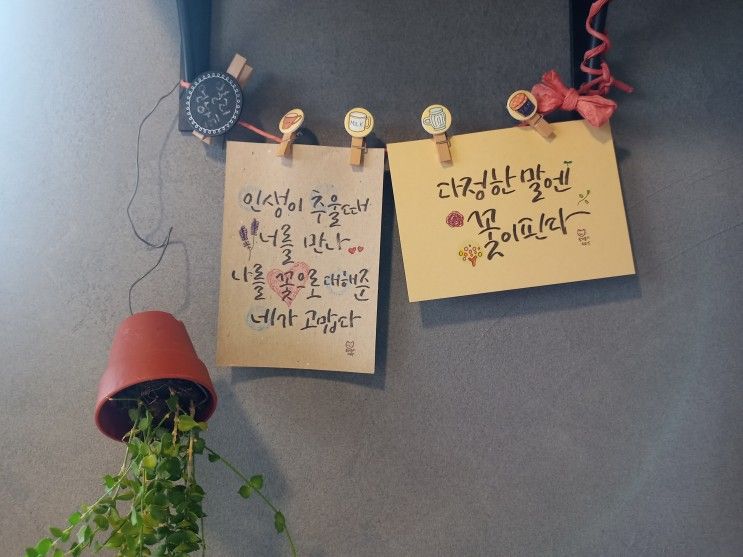 인생이 추울때
너를 만나
나를 꽃으로 대해준
네가 고맙다
다정한 말엔
꽃이핀다
MILK